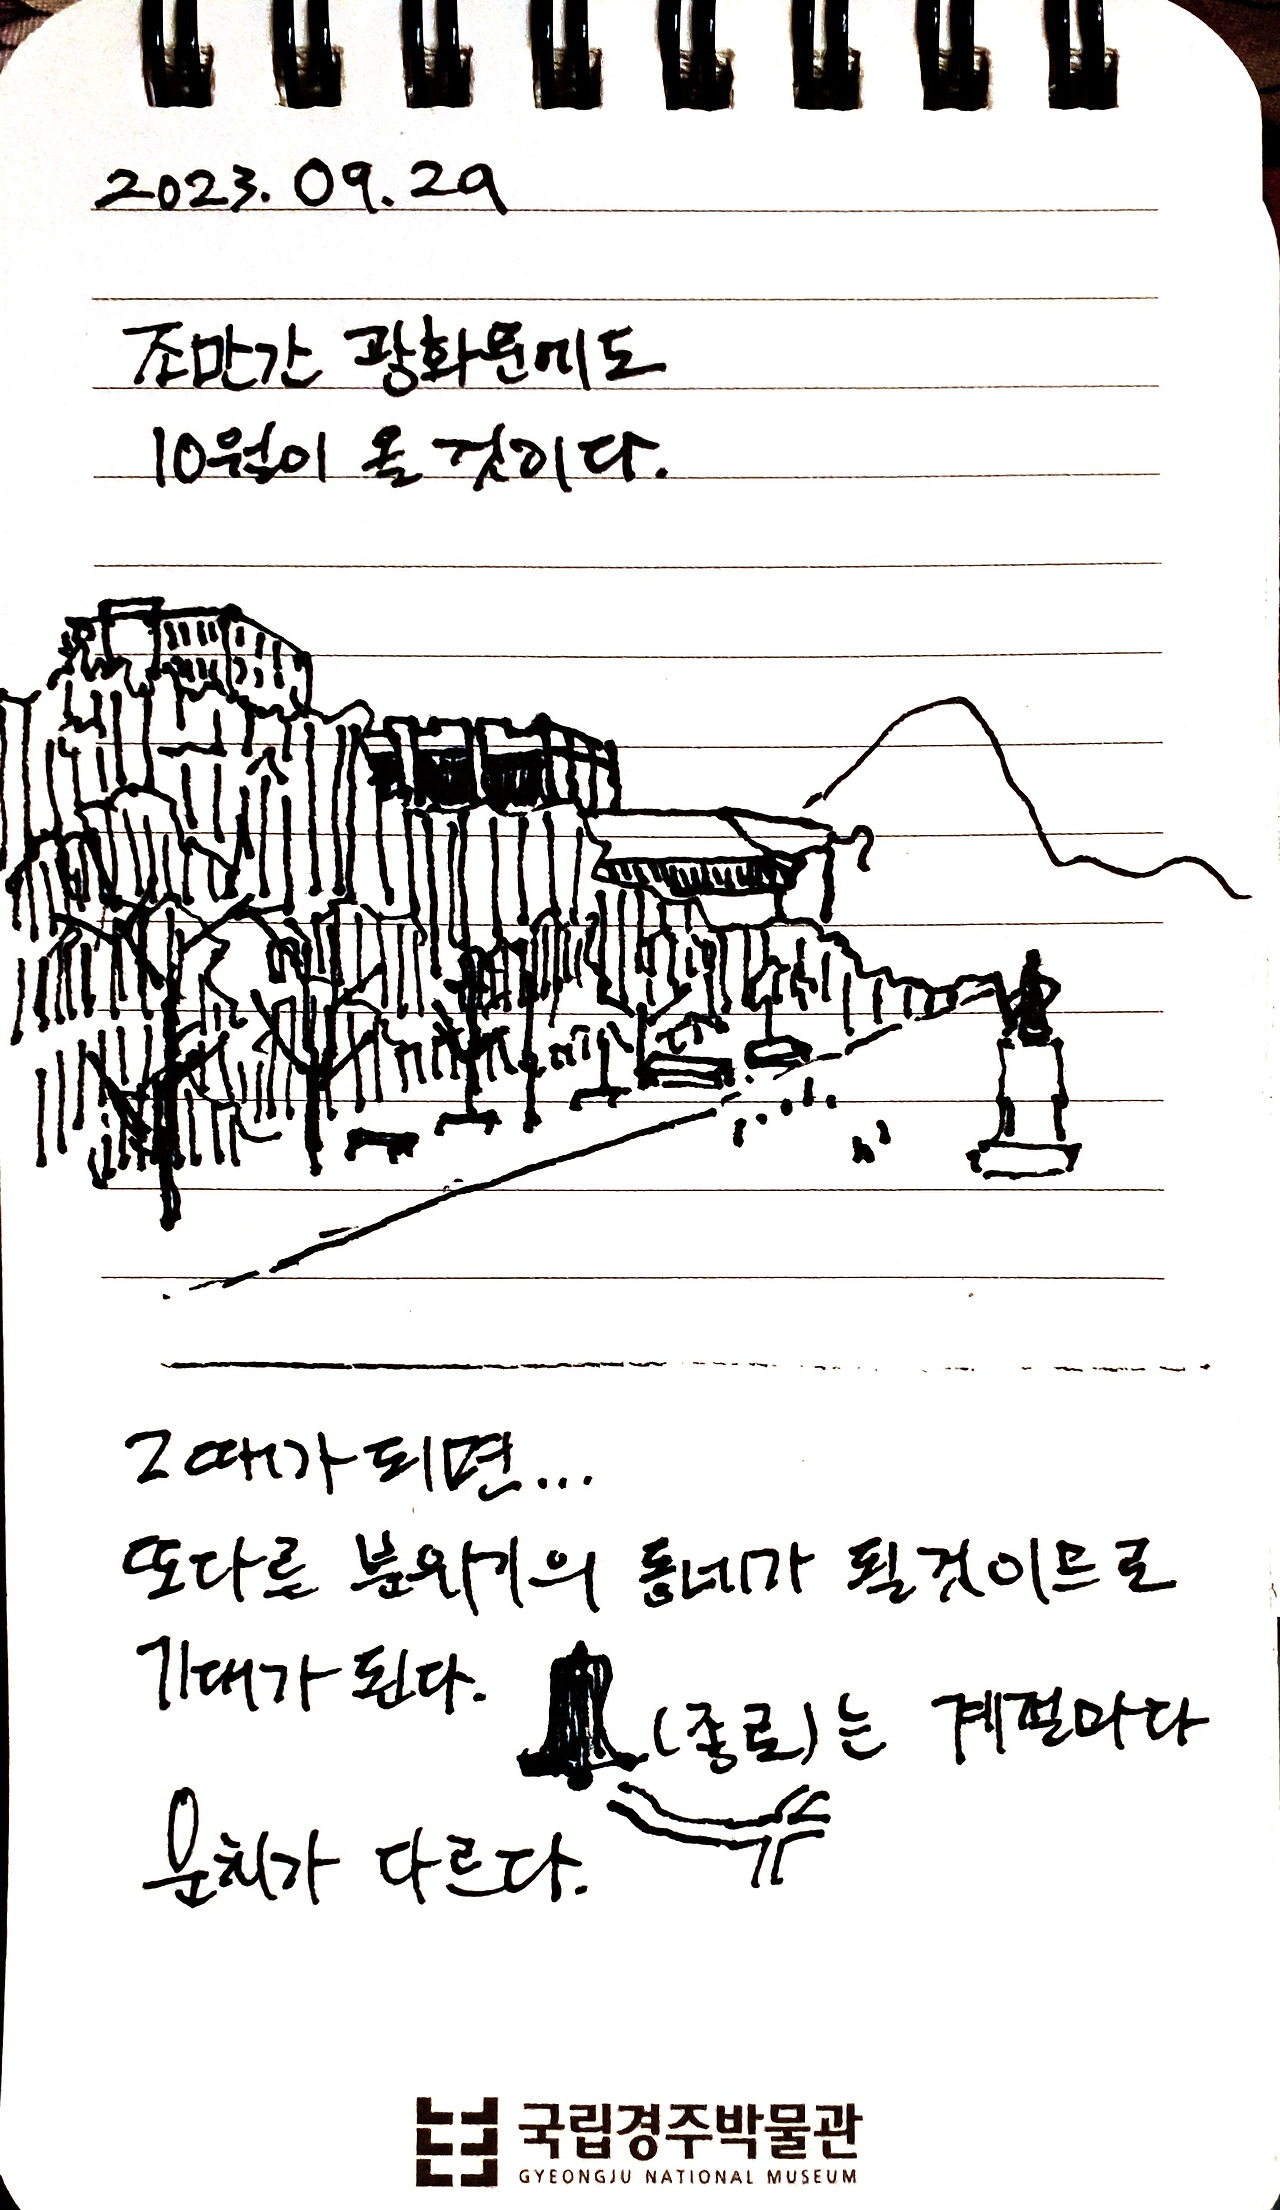 2023. 09. 29
조만간 광화문에도
10월이 올 것이다.
그때가 되면...
또다른 분위기의 동네가 될것이므로
기대가 된다.
(종로)는 계절마다
운치가 다르다.
국립경주박물관
GYEONGJU NATIONAL MUSEUM